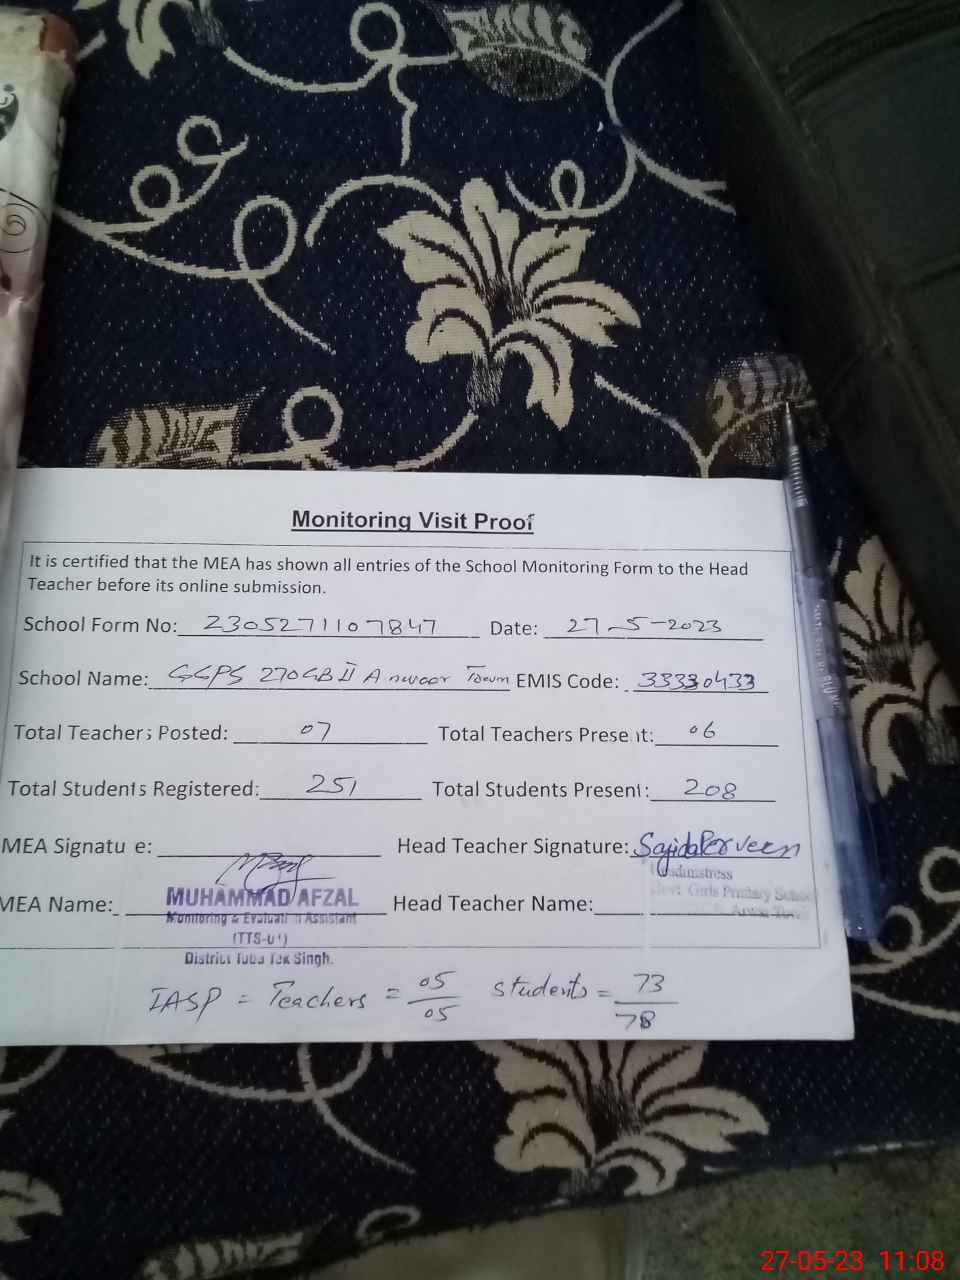 Monitoring Visit Proof
It is certified that the MEA has shown all entries of the School Monitoring Form to the Head
Teacher before its online submission.
School Form No: 2305271107847 Date: 27-5-2023
School Name: GGPS 270GB II Anwaar Town EMIS Code: 33330433
Total Teachers Posted: 07 Total Teachers Present: 06
Total Students Registered: 251 Total Students Present: 208
MEA Signature: Head Teacher Signature: Sajida Perveen
Headmistress
MEA Name: MUHAMMAD AFZAL Head Teacher Name: Govt. Girls Primary School
Monitoring & Evaluation Assistant
(TTS-01)
District Toba Tek Singh.
IASP = Teachers = 05/05 students = 73/78
27-05-23 11:08